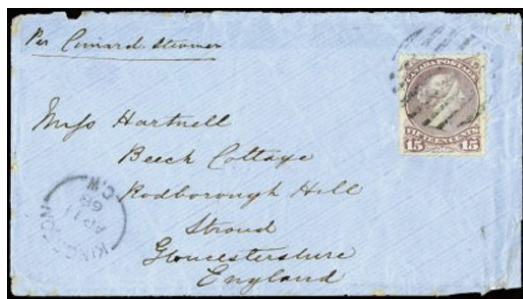 Per Cunard Steamer
CANADA POSTAGE
15 FIFTEEN CENTS 15
Miss Hartnell
Beech Cottage
Rodborough Hill
Stroud
Gloucestershire
England
KINGSTON
AP 11
68
C.W